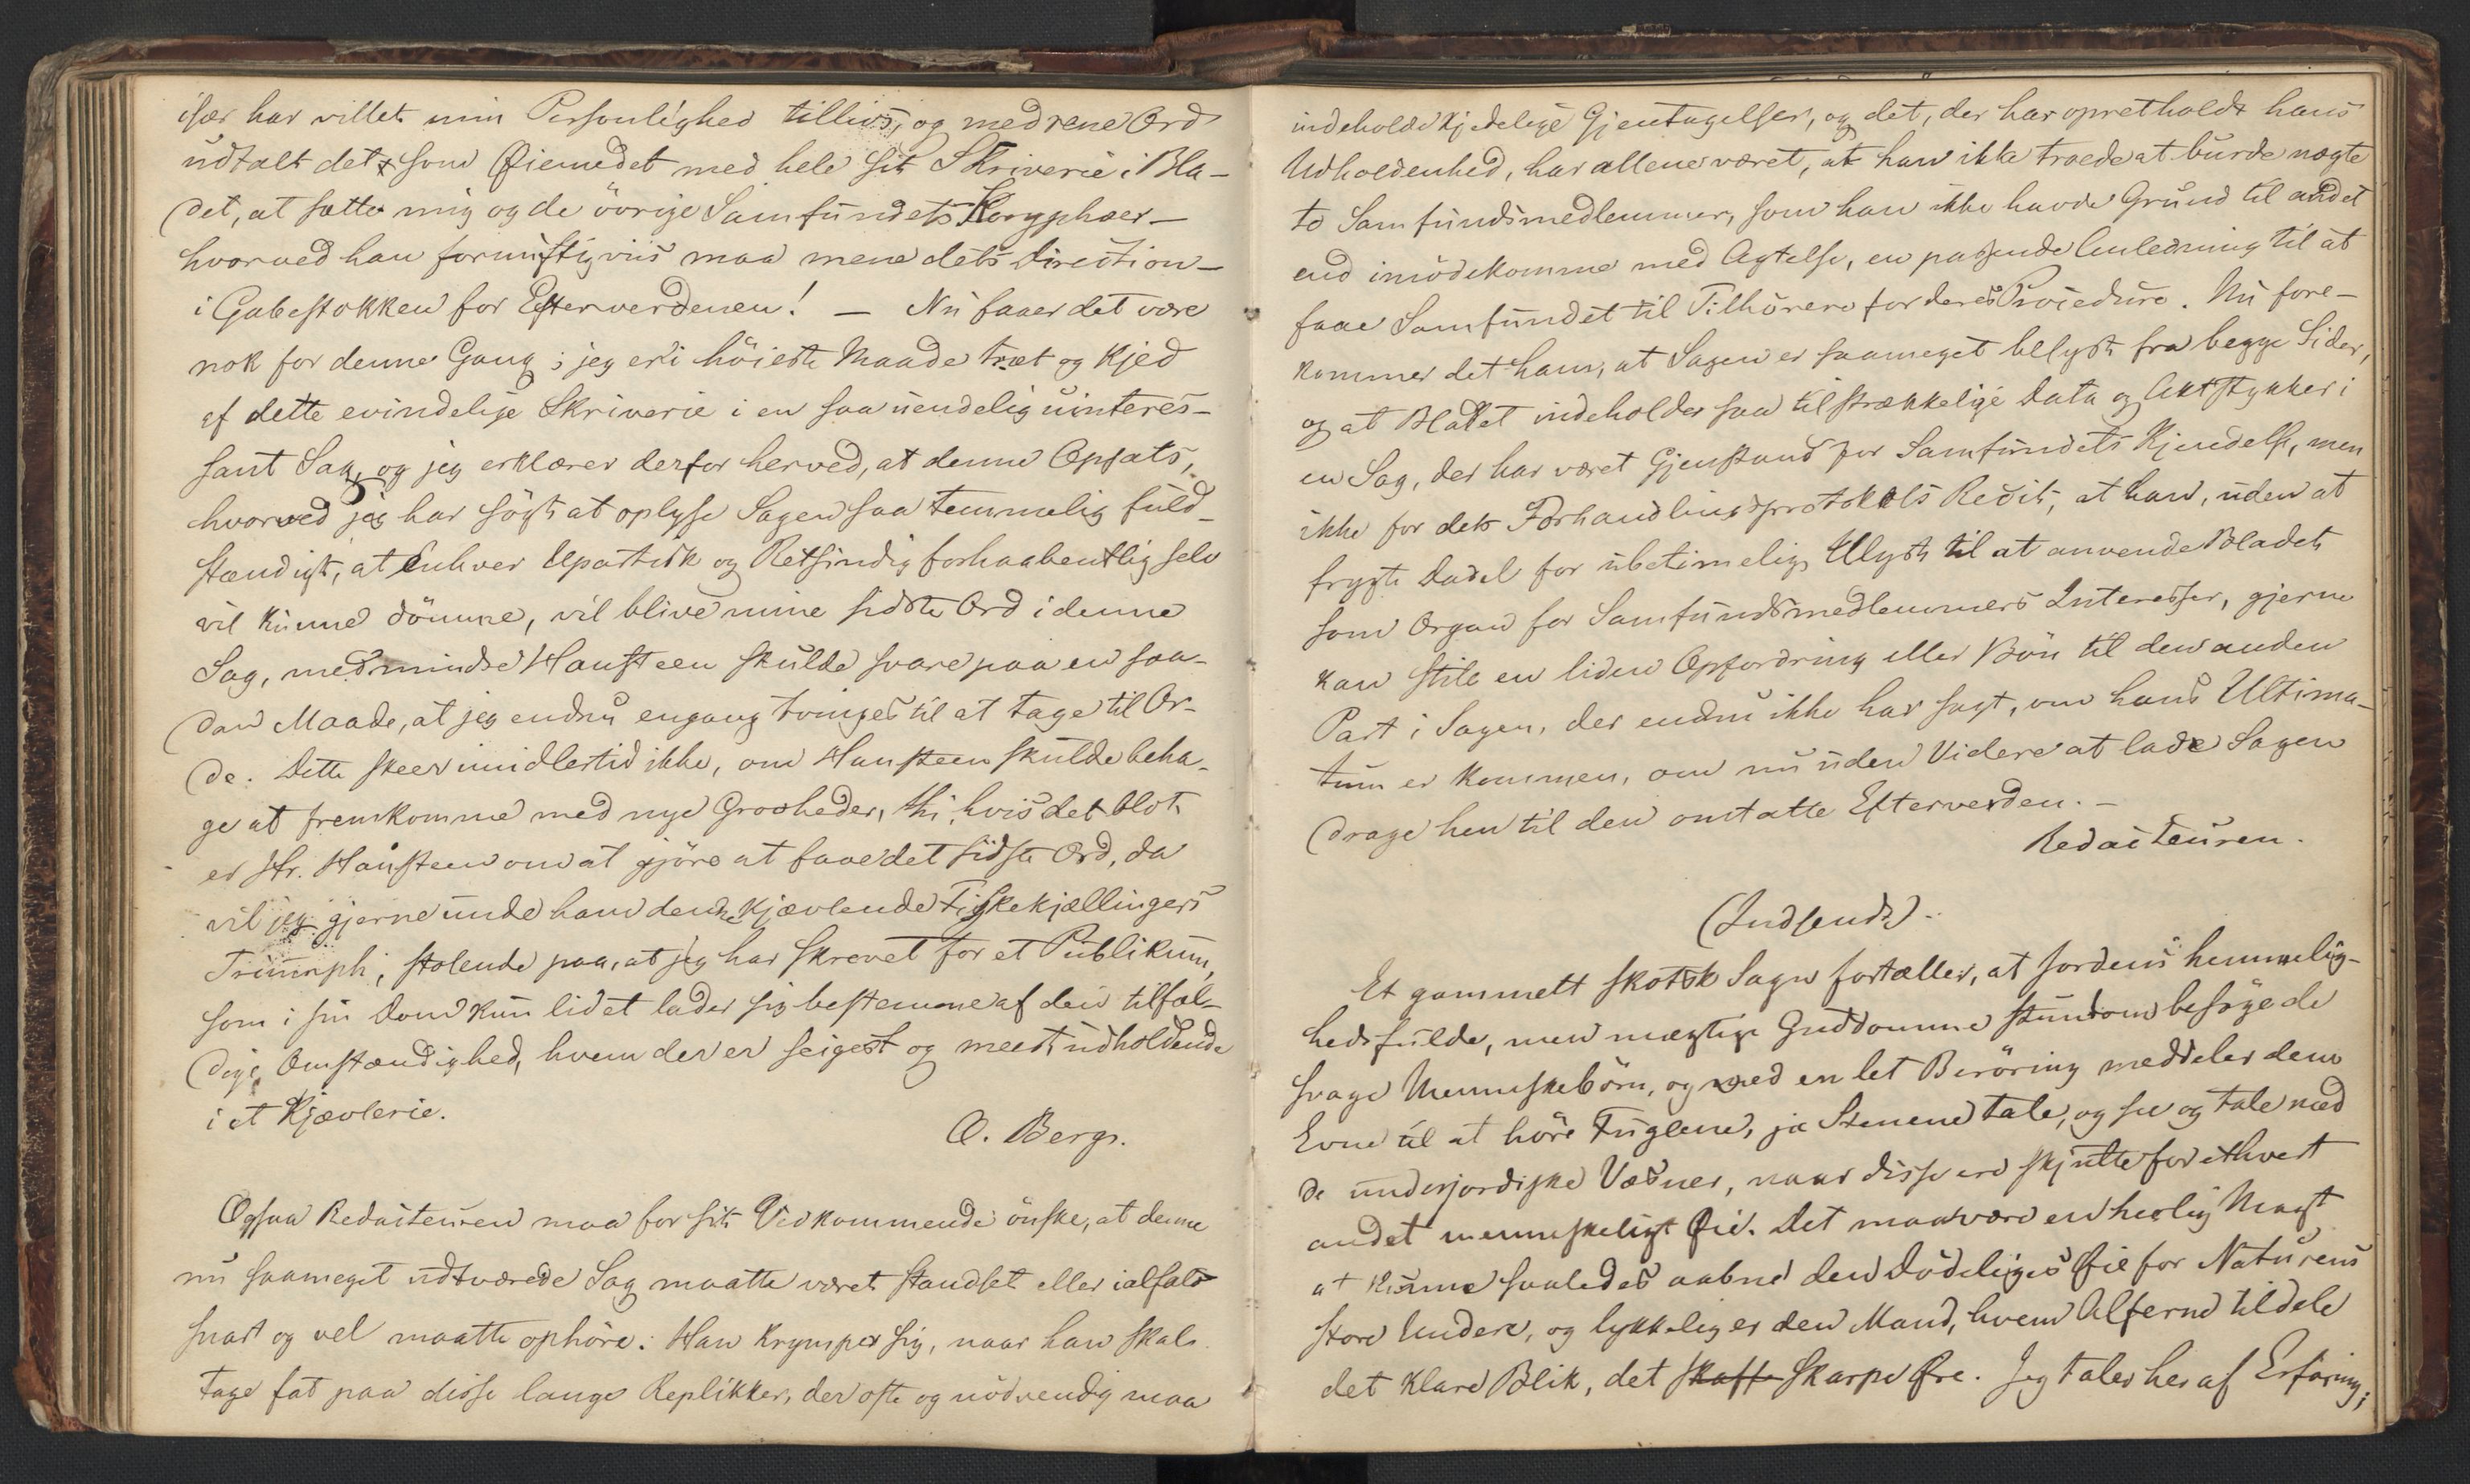 især har villet min Personlighed tillivs, og med rene Ord
udtalt det som Øiemedet med hele sit Skriverie i Bla-
det, at sætte mig og de övrige Samfundets Koryphæer –
hvorved han fornuftigviis maa mene dets Direction –
i Gabestokken for Efterverdenen! – Nu faaer det være
nok for denne Gang; jeg er i höieste Maade træt og kjed
af dette evindelige Skriverie i en saa uendelig uinteres-
sant Sag, og jeg erklærer derfor herved, at denne Opsats,
hvorved jeg har sögt at oplyse Sagen saa temmelig fuld-
stændigt, at Enhver Upartisk og Retsindig forhaabentlig selv
vil kunne dömme, vil blive mine sidste Ord i denne
Sag, medmindre Hansteen skulde svare paa en saa-
dan Maade, at jeg endnu engang tvinges til at tage til Or-
de. Dette skeer imidlertid ikke, om Hansteen skulde beha-
ge at fremkomme med nye Grovheder, thi, hvis det blot
er Hr. Hansteen om at gjöre at faae det sidste Ord, da
vil jeg gjerne unde ham denne kjævlende Fiskekjællingers
Triumph, stolende paa, at jeg har skrevet for et Publikum,
som i sin Dom kun lidet lader sig bestemme af den tilfæl-
dige Omstændighed, hvem der er seigest og meest udholdende
i et Kjævlerie.
O. Berg.
Ogsaa Redacteuren maa for sit Vedkommende önske, at denne
nu saameget udtværede Sag maatte været standset eller ialfald
snart og vel maatte ophöre. Han krymper sig, naar han skal
tage fat paa disse lange Replikker, der ofte og nödvendig maa
indeholde kjedelige Gjentagelser, og det, der har opretholdt hans
Udholdenhed, har allene været, at han ikke troede at burde nægte
to Samfundsmedlemmer, som han ikke havde Grund til andet
end imödekomme med Agtelse, en passende Anledning til at
faae Samfundet til Tilhörere for deres Procedure. Nu fore-
kommer det ham, at Sagen er saameget belyst fra begge Sider,
og at Bladet indeholder saa tilstrækkelige Data og Aktstykker i
en Sag, der har været Gjenstand for Samfundets Kjendelse, men
ikke for dets Forhandlingsprotokols Recit, at han, uden at
frygte Dadel for ubetimelig Ulyst til at anvende Bladet
som Organ for Samfundsmedlemmers Interesser, gjerne
kan stile en liden Opfordring eller Bön til den anden
Part i Sagen, der endnu ikke har sagt, om hans Ultima-
tum er kommen, om nu uden Videre at lade Sagen
drage hen til den omtalte Efterverden. –
Redacteuren.
(Indsendt).
Et gammelt skotsk Sagn fortæller, at Jordens hemmelig-
hedsfulde, men mægtige Guddomme stundom besöge de
svage Menneskebörn, og med en let Beröring meddeler dem
Evne til at höre Fuglene, ja Stenene tale, og see og tale med
de underjordiske Væsner, naar disse ere skjulte for ethvert
andet menneskeligt Øie. Det maa være en herlig Magt
at kunne saaledes aabne den Dödeliges Øie for Naturens
store Undere, og lykkelig er den Mand, hvem Alferne tildele
det klare Blik, det skaffe skarpe Øre. Jeg taler her af Erfaring;